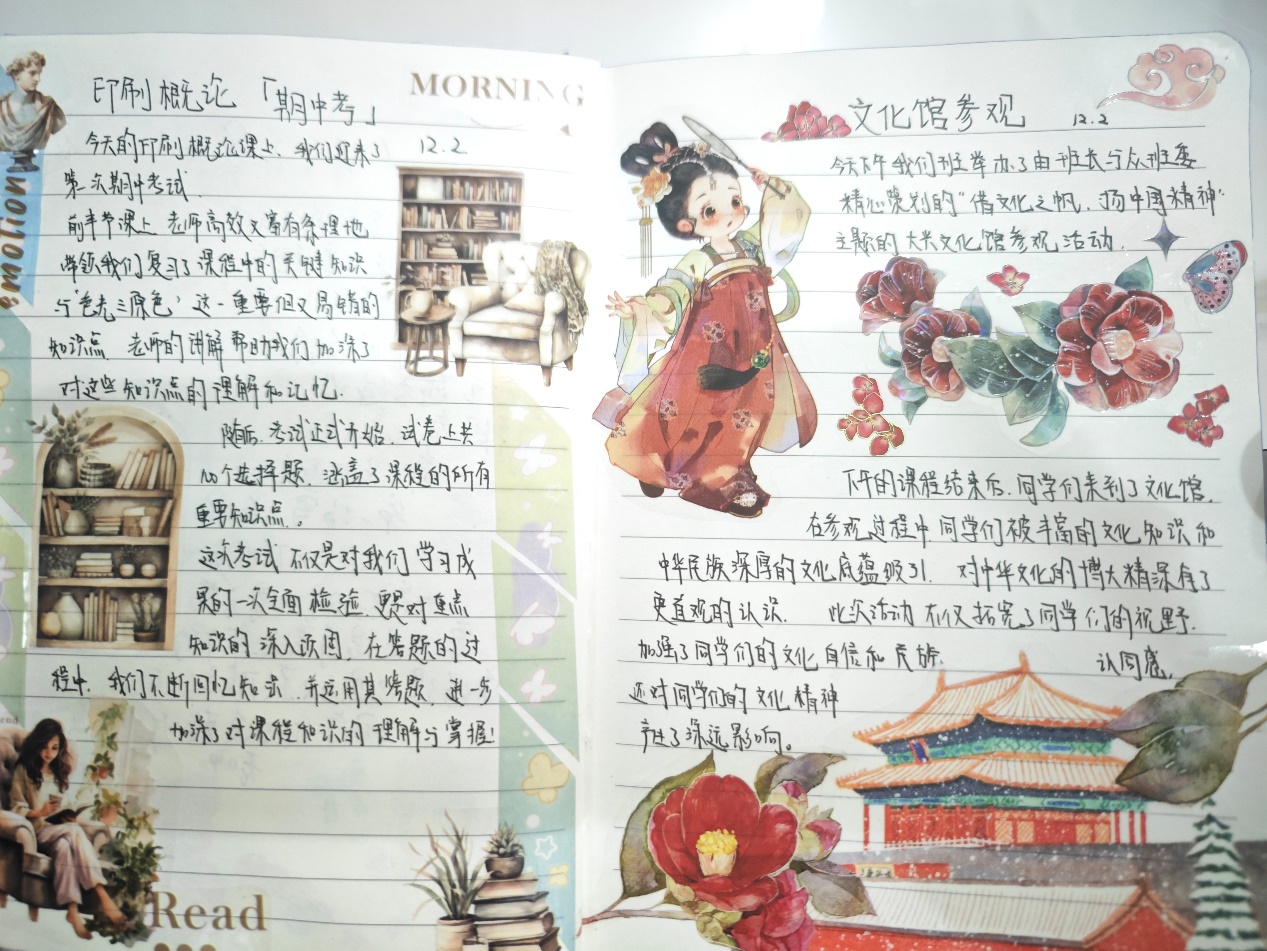 印刷概论「期中考」
MORNING
今天的印刷概论课上,我们迎来了
12.2
第一次期中考试.
前半节课上 老师高效又富有条理地
带领我们复习了课程中的关键知识
与'色光三原色'这一重要但又易错的
知识点 老师的讲解帮助我们加深了
对这些知识点的理解和记忆.
随后,考试正式开始,试卷上共
100个选择题,涵盖了课程的所有
重要知识点。
这次考试 不仅是对我们学习成
果的一次全面检验 更是对重点
知识的深入巩固,在答题的过
程中,我们不断回忆知识 并运用其答题,进一步
加深了对课程知识的理解与掌握!
Read
文化馆参观
12.2
今天下午我们班举办了由班长与众班委
精心策划的“借文化之帆,扬中国精神”
主题的大兴文化馆参观活动.
下午的课程结束后,同学们来到了文化馆.
在参观过程中同学们被丰富的文化知识和
中华民族深厚的文化底蕴吸引.对中华文化的博大精深有了
更直观的认识.此次活动不仅拓宽了同学们的视野.
加强了同学们的文化自信和民族 认同感,
还对同学们的文化精神
产生了深远影响。